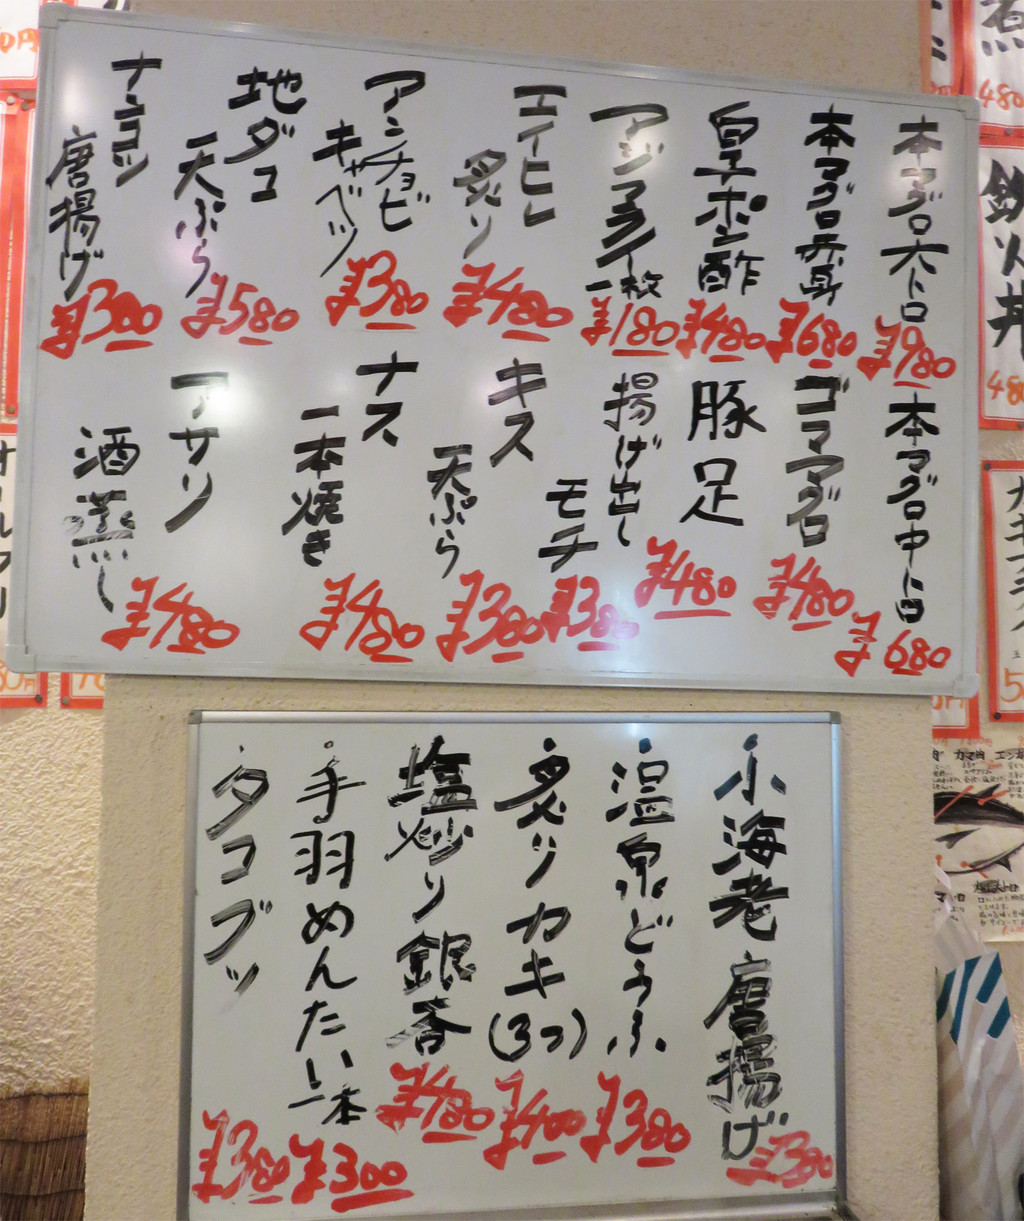 本マグロ大トロ
¥980
本マグロ赤身
¥680
皇ポン酢
¥480
アジフライ一枚
¥180
エイヒレ
炙り
¥480
アンチョビ
キャベツ
¥380
地ダコ
天ぷら
¥580
ナンコツ
唐揚げ
¥300
本マグロ中トロ
¥680
ゴママグロ
¥480
豚足
¥480
揚げ出し
モチ
¥380
キス
天ぷら
¥380
ナス
一本焼き
¥480
アサリ
酒蒸し
¥480
小海老唐揚げ
¥380
温泉どうふ
¥380
炙りカキ(3つ)
¥400
塩炒り銀杏
¥480
手羽めんたい一本
¥300
タコブツ
¥380
鉄火丼
480